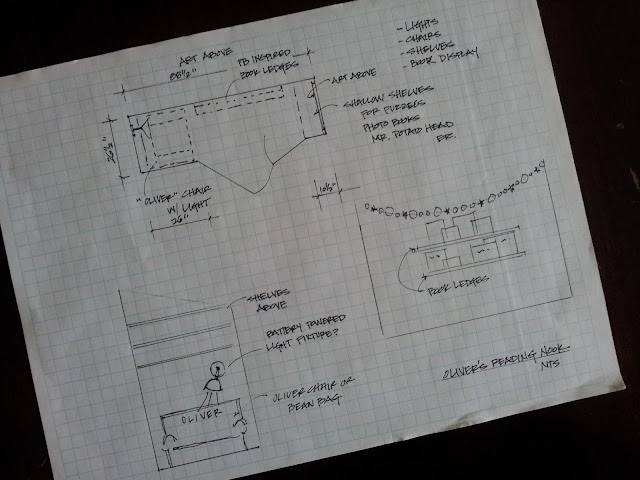 ART ABOVE
88½"
PB INSPIRED
BOOK LEDGES
- LIGHTS
- CHAIRS
- SHELVES
- BOOK DISPLAY
ART ABOVE
SHALLOW SHELVES
FOR PUZZLES
PHOTO BOOKS
MR. POTATO HEAD
ETC.
26½"
"OLIVER" CHAIR
W/ LIGHT
26"
10½"
BOOK LEDGES
SHELVES
ABOVE
BATTERY POWERED
LIGHT FIXTURE?
OLIVER CHAIR OR
BEAN BAG
OLIVER
OLIVER'S READING NOOK
NTS